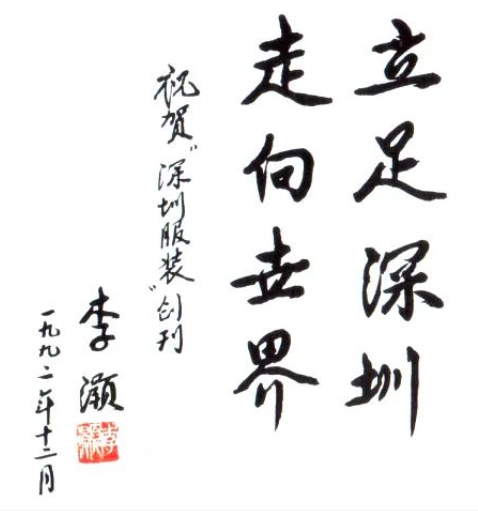 立足深圳
走向世界
祝贺“深圳服装”创刊
李灏
一九九二年十二月